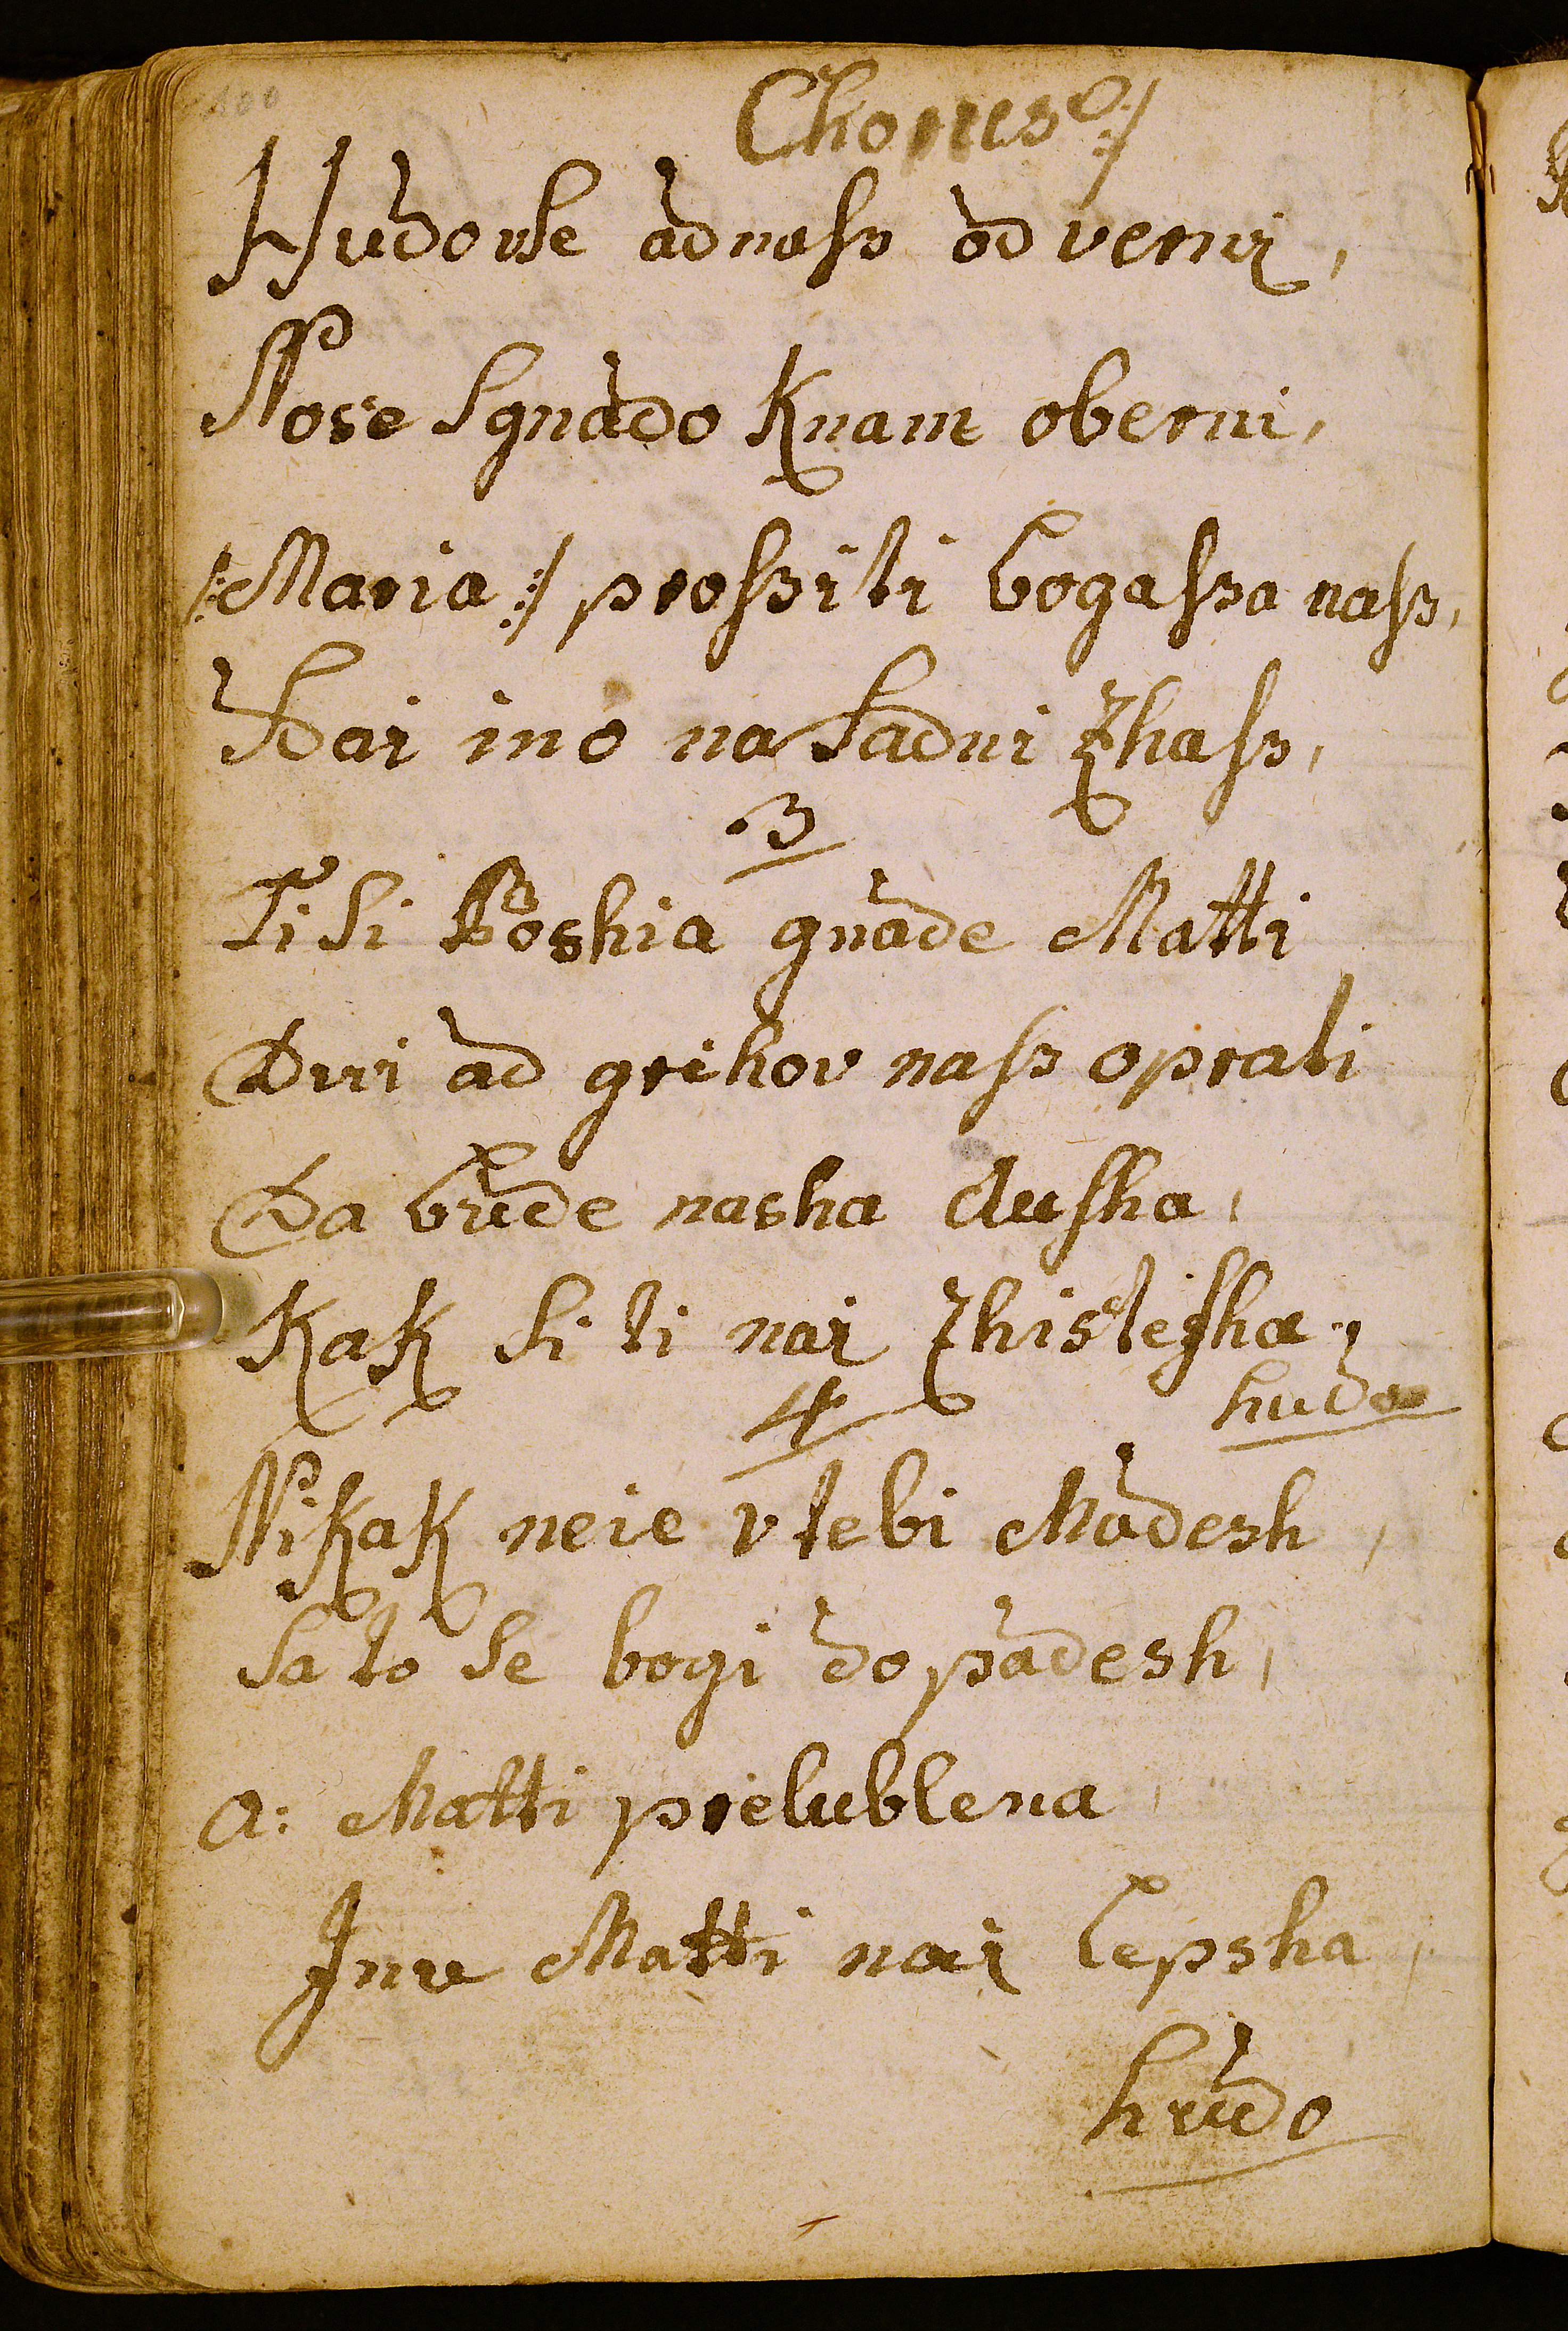 100
Chorus:/
Hudo vse ad nass od verni,
Nose Sgnado Knam oberni,
/:Maria:/ prossi ti bogassa nass,
Dai ino na Sadni Zhass,
3
Ti Si Boshia gnade Matti
Dvri ad grihov nass oprati
Da bude nasha dusha,
Kak Si ti nai Zhistezha,
hudo
4
Nikak neie v tebi Madesh,
Sa to Se bogi dopadesh,
a: Matti prelublena,
Inu Matti nai lepsha,
hudo